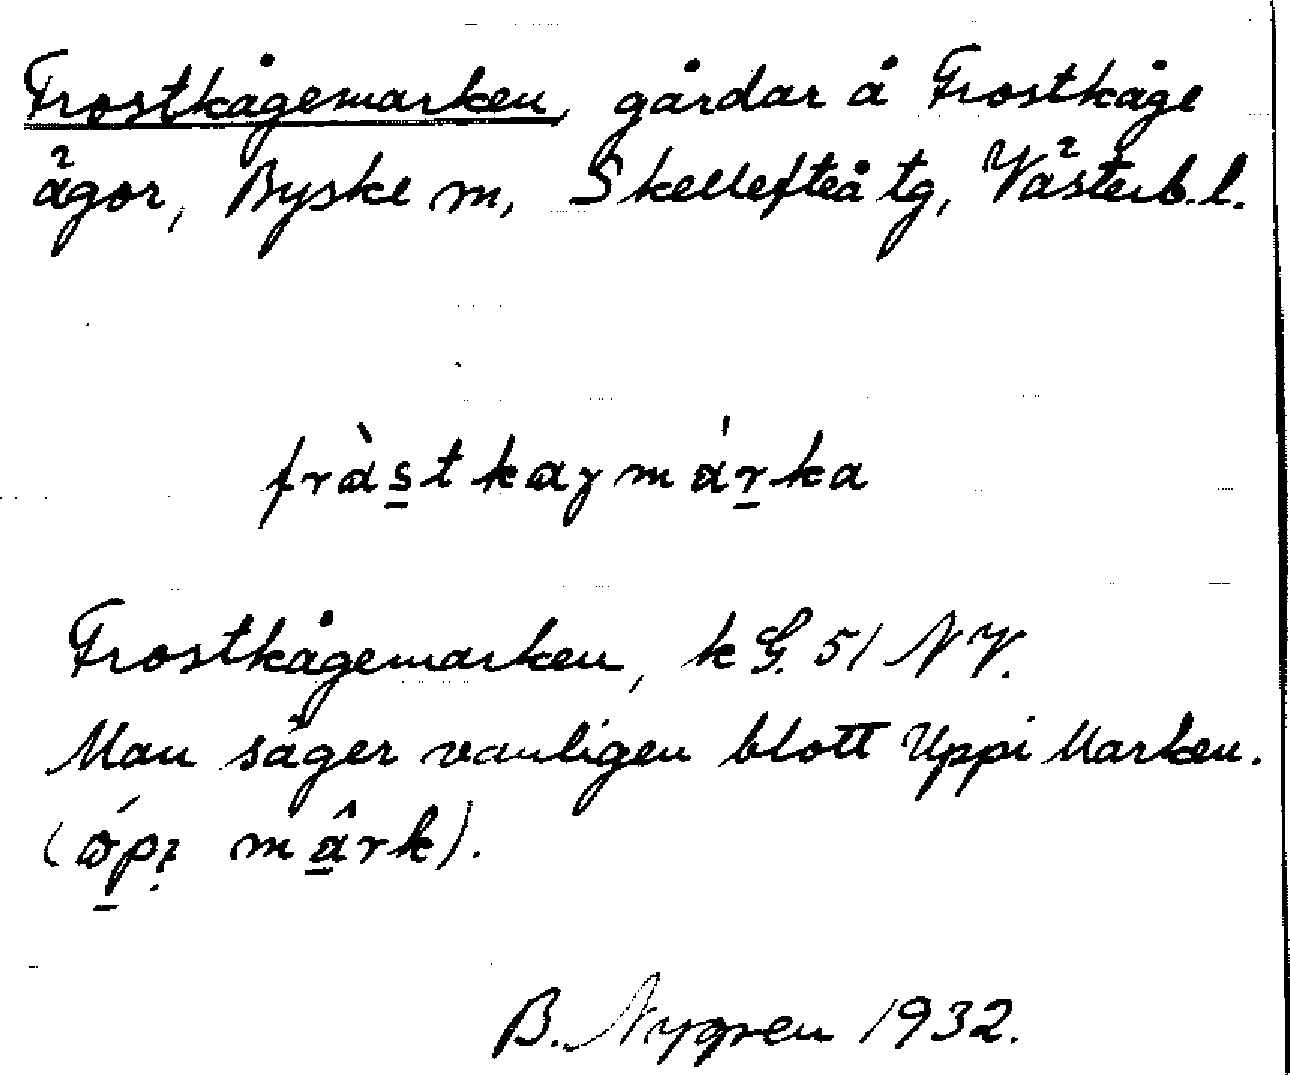 Frostkågemarken, gårdar å Frostkåge
ägor, Byske sn, Skellefteå tg, Västerb. l.
fràs̲tkaɣmár̲ka
Frostkågemarken, k G. 51 NV.
Man säger vanligen blott Uppi Marken.
(öpı mârk).
B. Nygren 1932.